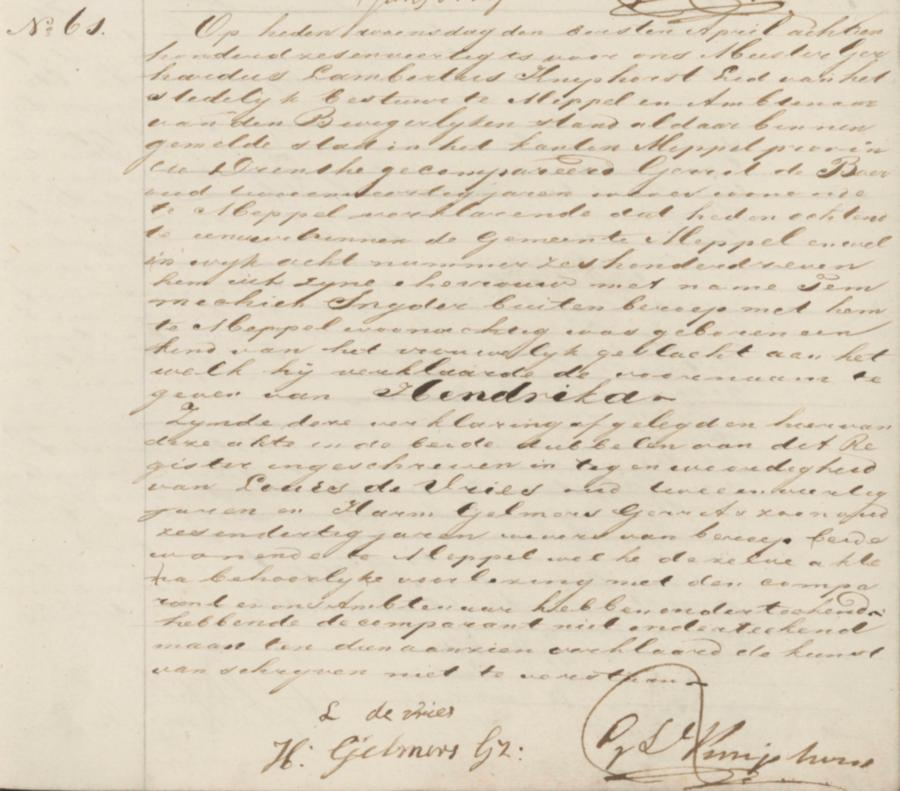 No 61.
Op heden woensdag den eersten April achtien
honderd zesenveertig is voor ons Meester Ger
hardus Lambertus Kniphorst Lid van het
stedelyk bestuur te Meppel en Ambtenaar
van den Burgerlyken stand aldaar binnen
gemelde stad in het kanton Meppel provin
cie Drenthe gecompareerd Gerrit de Boer
oud jaren wonende
te Meppel verklarende dat heden ochtend
te uur binnen de Gemeente Meppel en wel
in wyk acht nummer zeshonderd zeven
hem uit zyne ehevrouw met name Fem
mechien Snyder buiten beroep met hem
te Meppel woonachtig was geboren een
kind van het vrouwelyk geslacht aan het
welk hy verklaarde de voornaam te
geven van Hendrika
Zynde deze verklaring afgelegd en hiervan
deze akte in de beide dubbelen van dit Re
gister ingeschreven in tegenwoordigheid
van Louis de Vries oud tweeenveertig
jaren en Harm Gelmers Gerrits zoon oud
zesendertig jaren wevers van beroep beide
wonende te Meppel welke dezelve akte
na behoorlyke voorlezing met den compa
rant en ons Ambtenaar hebben ondertekend
hebbende de comparant niet ondertekend
maar ten dien aanzien verklaard de kunst
van schryven niet te verstaan
L de Vries
H: Gelmers Gz:
G L Kniphorst